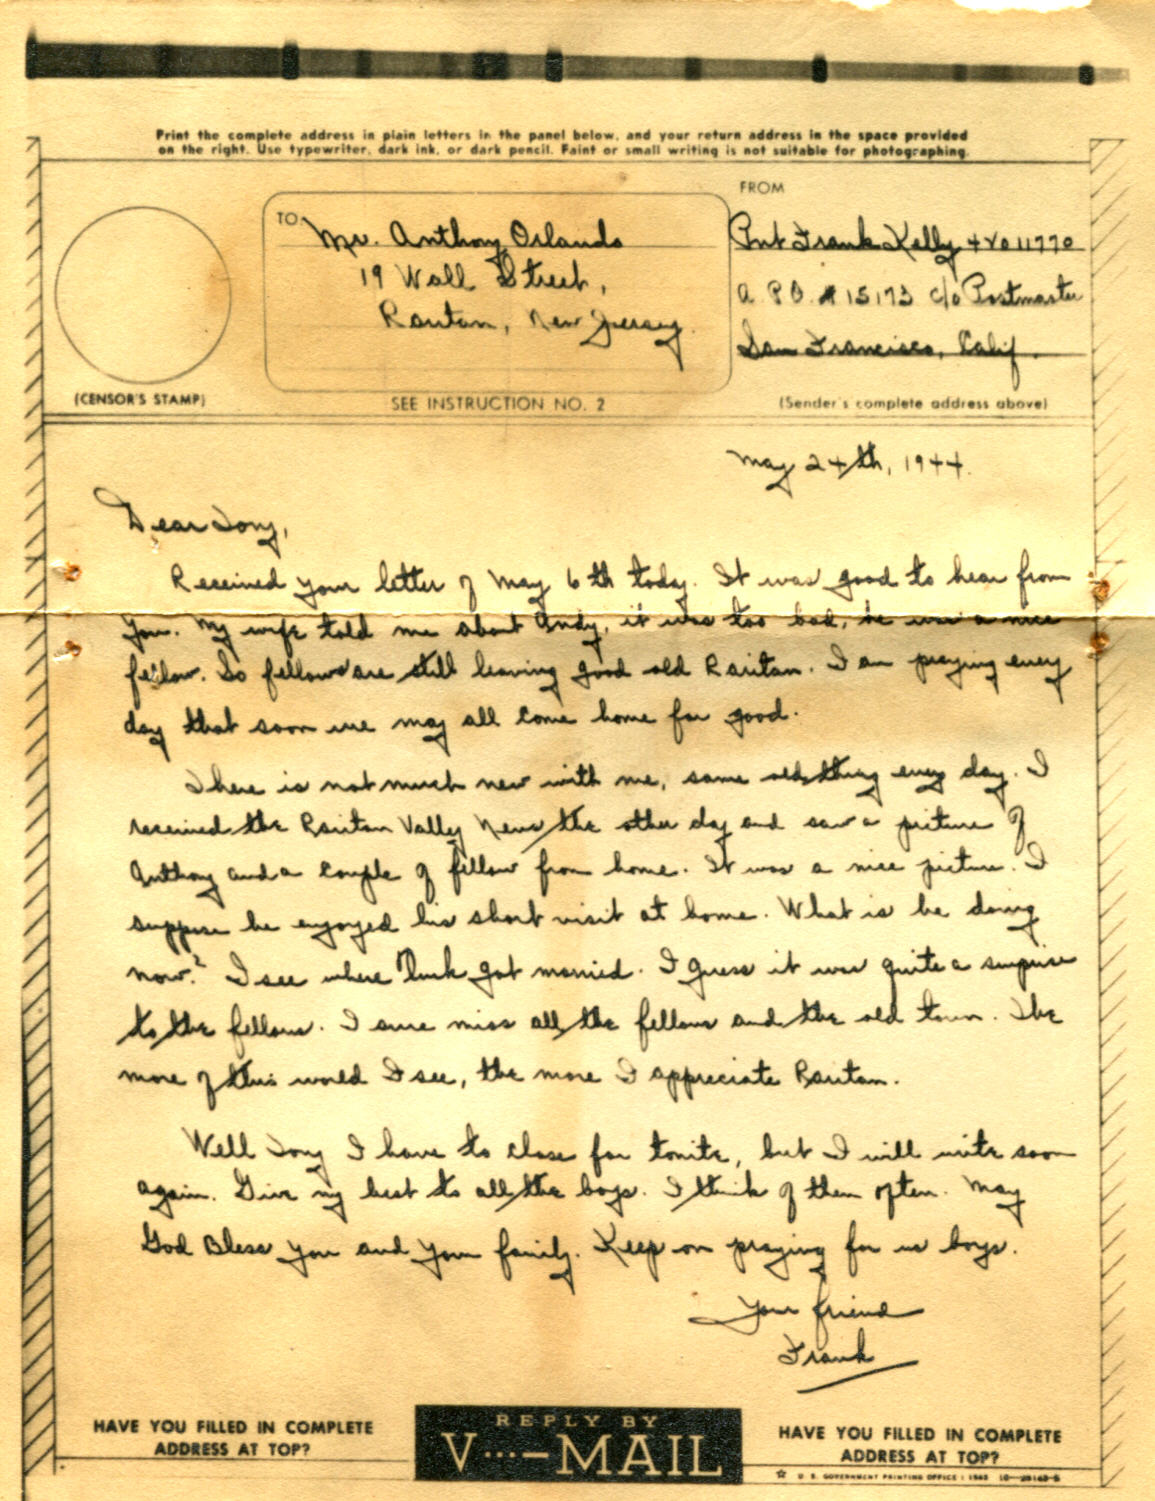 Print the complete address in plain letters in the panel below, and your return address in the space provided
on the right. Use typewriter, dark ink, or dark pencil. Faint or small writing is not suitable for photographing.
FROM
TO
Mr. Anthony Orlando
19 Wall Street,
Raritan, New Jersey.
Pvt Frank Kelly 42011770
A.P.O. # 15173 c/o Postmaster
San Francisco, Calif.
(CENSOR'S STAMP)
SEE INSTRUCTION NO. 2
(Sender's complete address above)
May 24th, 1944.
Dear Tony,
Received your letter of May 6th today. It was good to hear from
you. My wife told me about Andy, it was too bad, he was a nice
fellow. So fellows are still leaving good old Raritan. I am praying every
day that soon we may all come home for good.
There is not much new with me, same old thing every day. I
received the Raritan Valley News the other day and saw a picture of
Anthony and a couple of fellow from home. It was a nice picture. I
suppose he enjoyed his short visit at home. What is he doing
now? I see where got married. I guess it was quite a surprise
to the fellows. I sure miss all the fellows and the old town. The
more of this world I see, the more I appreciate Raritan.
Well Tony I have to close for tonite, but I will write soon
again. Give my best to all the boys. I think of them often. May
God Bless you and your family. Keep on praying for us boys.
Your friend
Frank
HAVE YOU FILLED IN COMPLETE
ADDRESS AT TOP?
REPLY BY
V···—MAIL
HAVE YOU FILLED IN COMPLETE
ADDRESS AT TOP?
☆ U. S. GOVERNMENT PRINTING OFFICE : 1943